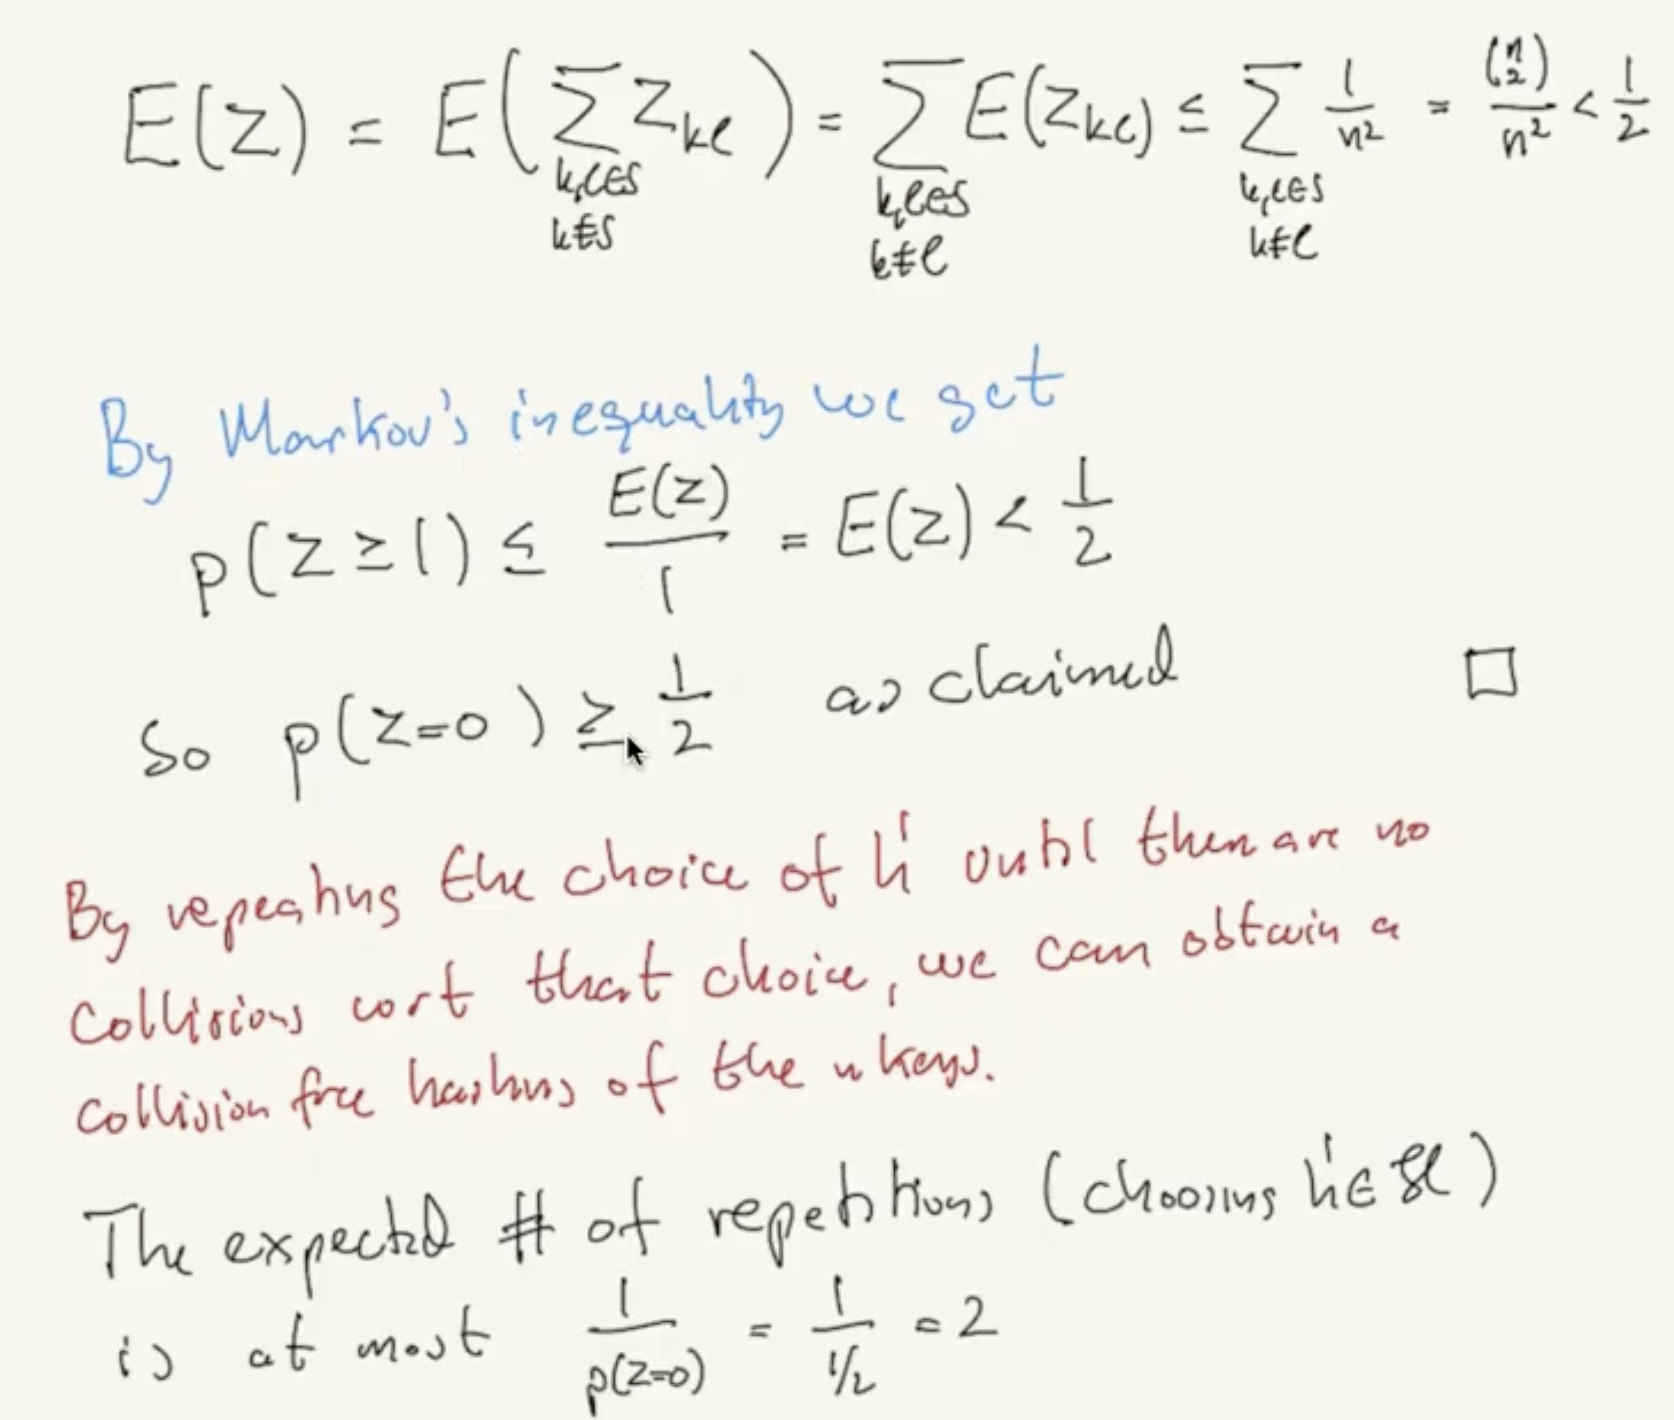 E(Z) = E( ∑ Z_kl ) = ∑ E(Z_kl) ≤ ∑ 1/n² = (n 2)/n² < 1/2
k,l∈S k,l∈S k,l∈S
k≠S k≠l k≠l
By Markov's inequality we get
p(Z ≥ 1) ≤ E(Z)/1 = E(Z) < 1/2
So p(Z=0) ≥ 1/2 as claimed □
By repeating the choice of h' until there are no
collisions wrt that choice, we can obtain a
collision free hashing of the n keys.
The expected # of repetitions (choosing h'∈ℋ)
is at most 1/p(Z=0) = 1/1/2 = 2